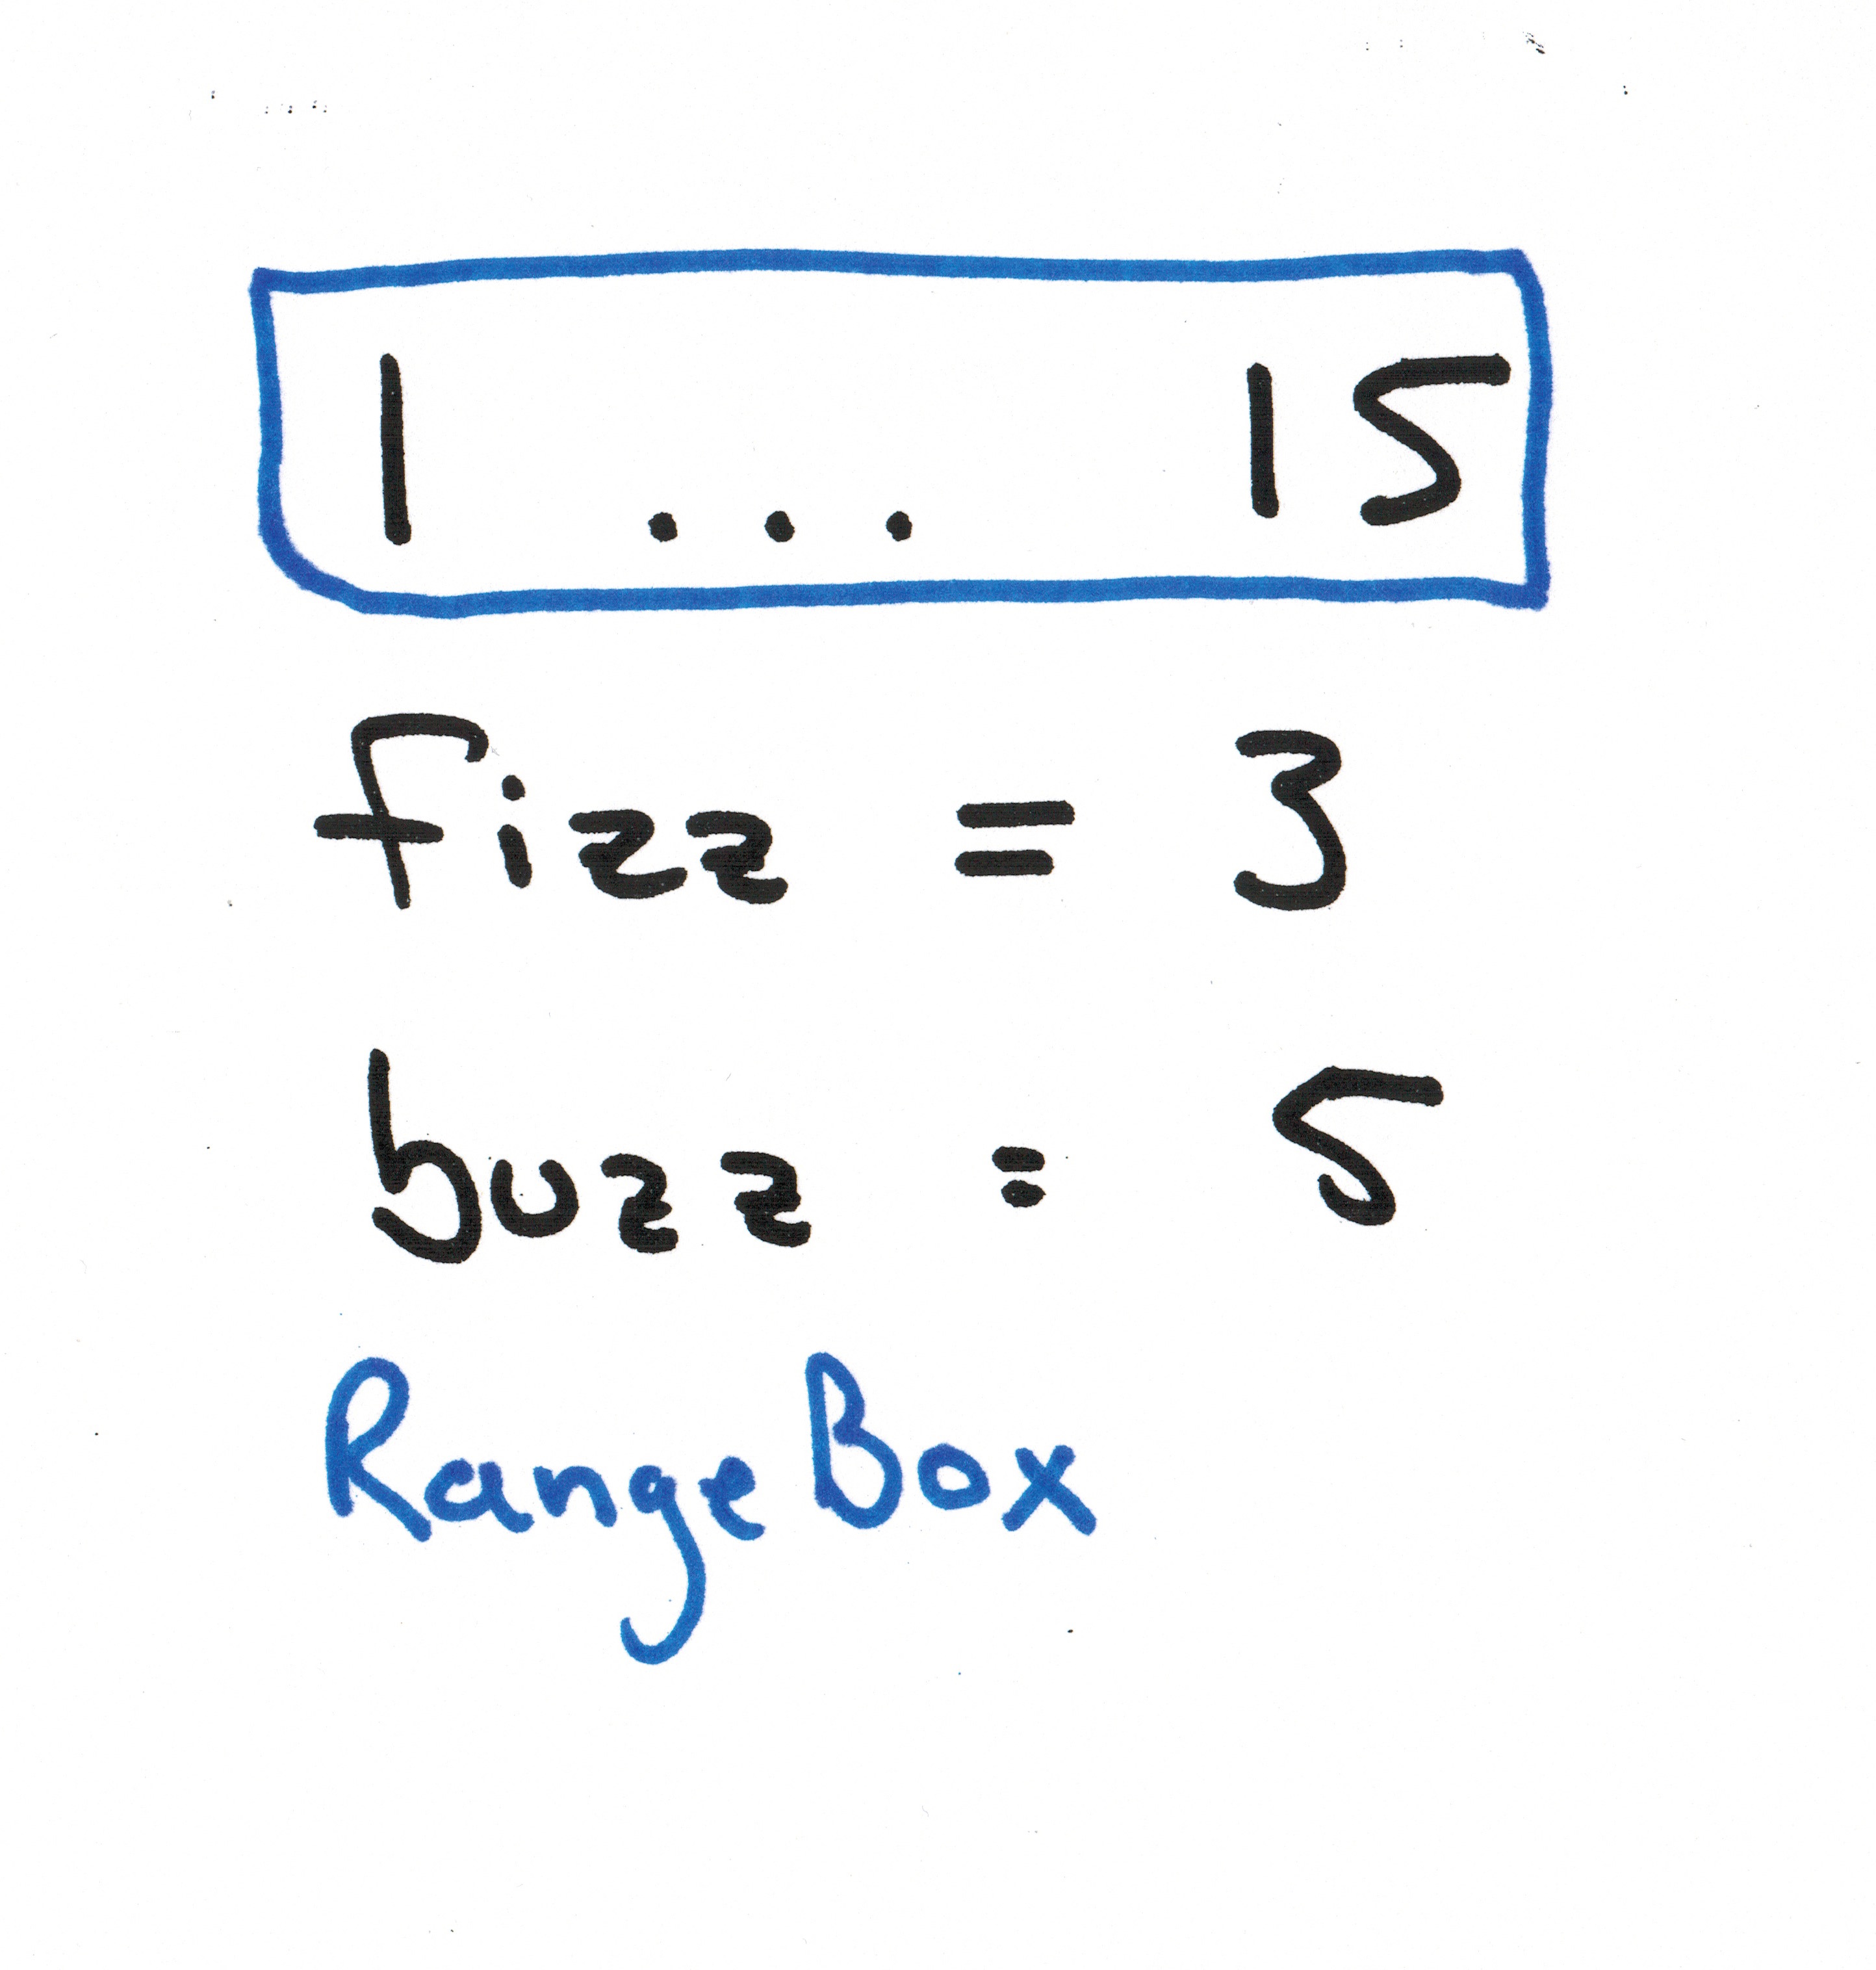 1 ... 15
fizz = 3
buzz = 5
Range Box